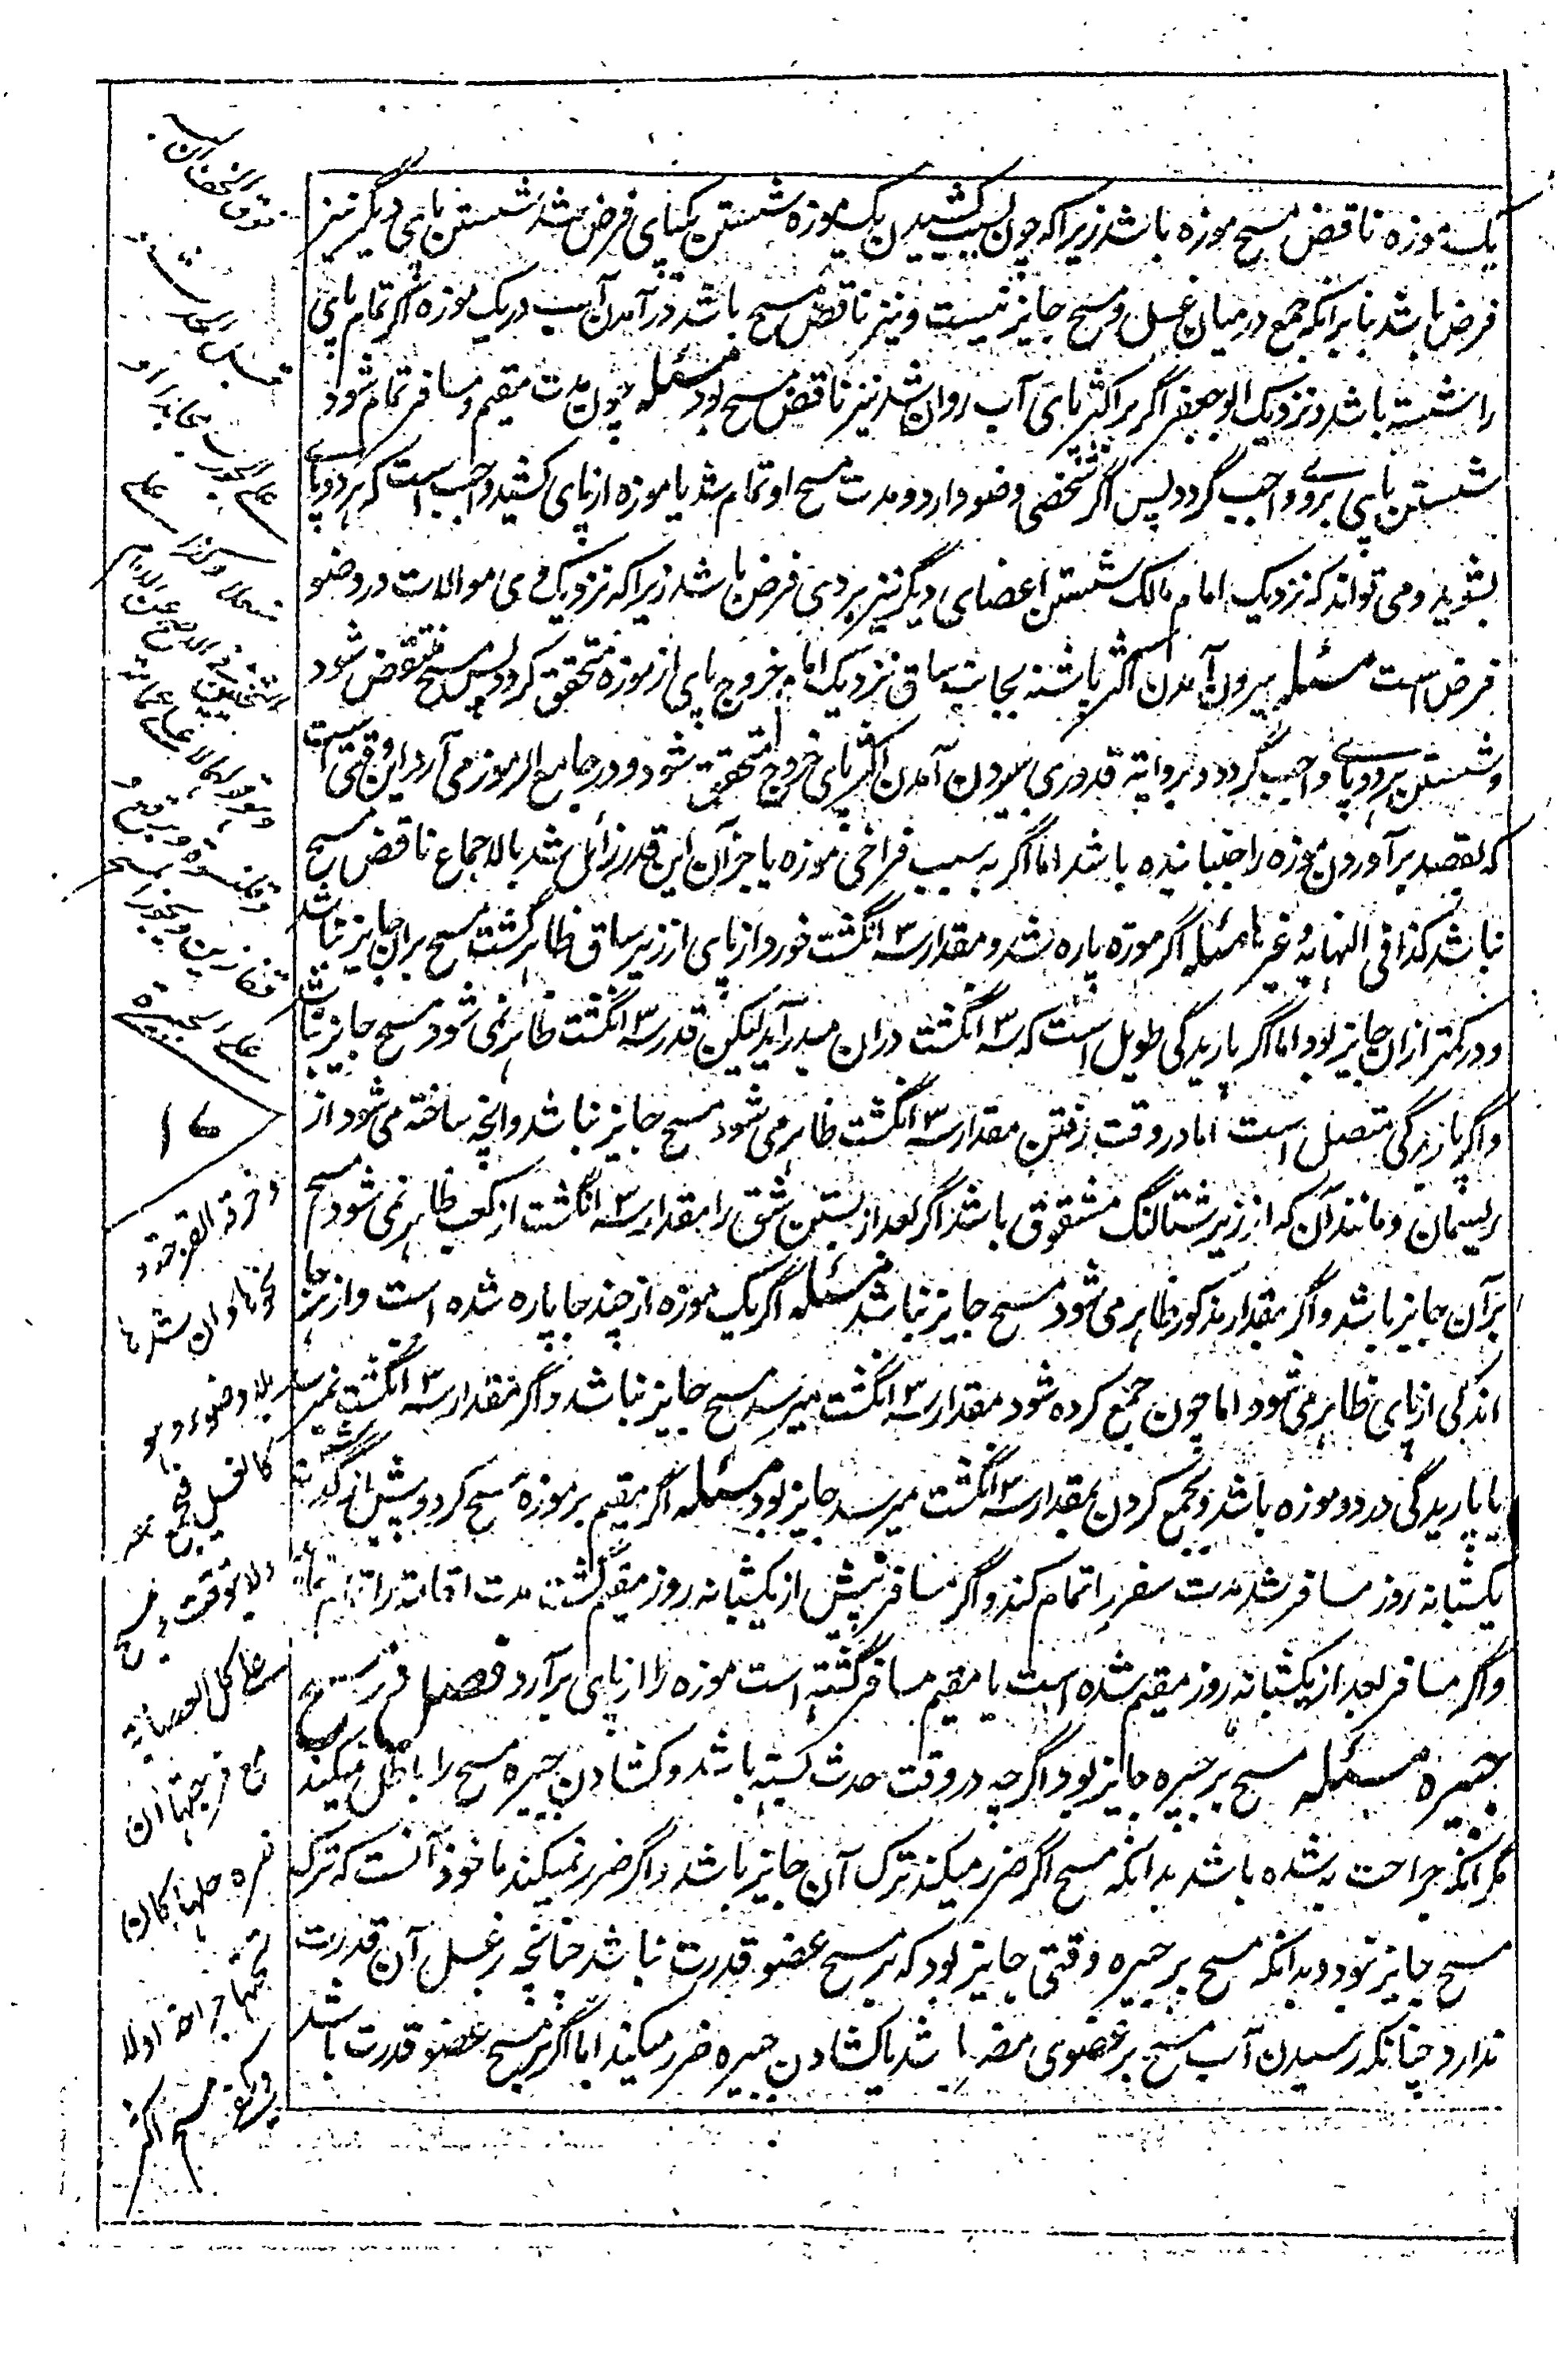 یک موزه ناقض مسح موزه باشد زیراکه چون بسبب کشیدن یک موزه شستن یکپای فرض شد شستن پای دیگر نیز
فرض باشد بنا برانکه جمع درمیان غسل و مسح جایز نیست و نیز ناقض مسح باشد در آمدن آب در یک موزه اگر تمام پای
را شسته باشد و نزدیک ابو جعفر اگر بر اکثر پای آب روان شد نیز ناقض مسح بود مسئله چون مدت مقیم و مسافر تمام شود
شستن پای بروے واجب گردد پس اگر شخصی وضو دارد و مدت مسح او تمام شد یا موزه از پای کشید واجب است که هر دو پاے
بشوید و می تواند که نزدیک امام مالک شستن اعضای دیگر نیز بر وی فرض باشد زیراکه نزدیک وی موالات در وضو
فرض است مسئله بیرون آمدن اکثر پاشنه بجانب ساق نزدیک امام خروج پای از موزه متحقق گردد پس مسح منتقض شود
و شستن هر دو پاے واجب گردد و بروایة قدوری بیرون آمدن اکثر پای خروج متحقق شود و در جامع الرموز می آرد این وقتی است
که بقصد بر آوردن موزه را جنبانیده باشد اما اگر به سبب فراخی موزه یا جز آن این قدر زائل شد بالاجماع ناقض مسح
نباشد کذا فی النهایه و غیرها مسئله اگر موزه پاره شد و مقدار سه ۳ انگشت خورد از پای از زیر ساق ظاهر گشت مسح بران جایز نباشد
و در کمتر ازان جایز بود اما اگر پاریدگی طویل است که سه ۳ انگشت دران میدرآید لیکن قدر سه ۳ انگشت ظاهر نمی شود مسح جایز باشد
و اگر پاریدگی متصل است اما در وقت رفتن مقدار سه ۳ انگشت ظاهر می شود مسح جایز نباشد و آنچه ساخته می شود از
ریسمان و مانند آن که از زیر شتالنگ مشقوق باشد اگر بعد از بستن شق را مقدار سه ۳ انگشت از کعب ظاهر نمی شود مسح
بر آن جایز باشد و اگر مقدار مذکور ظاهر می شود مسح جایز نباشد مسئله اگر یک موزه از چند جا پاره شده است و از هر جا
اندکی از پای ظاهر می شود اما چون جمع کرده شود مقدار سه ۳ انگشت میرسد مسح جایز نباشد و اگر مقدار سه ۳ انگشت نمیرسد
یا پاریدگی در دو موزه باشد و بجمع کردن بمقدار سه ۳ انگشت میرسد جایز بود مسئله اگر مقیم بر موزه مسح کرد و پیش از گذشتن
یکشبانه روز مسافر شد مدت سفر را تمام کند و اگر مسافر پیش از یکشبانه روز مقیم گشت مدت اقامة را تمام
و اگر مسافر بعد از یکشبانه روز مقیم شده است یا مقیم مسافر گشته است موزه را از پای برآرد فصل در مسح
جبیره مسئله مسح بر جبیره جایز بود اگرچه در وقت حدث بسته باشد و کشادن جبیره مسح را باطل میکند
مگر آنکه جراحت به شده باشد بدانکه مسح اگر ضرر میکند ترک آن جایز باشد و اگر ضرر نمیکند ماخوذ آنست که ترک
مسح جایز نبود و بدانکه مسح بر جبیره وقتی جایز بود که بر مسح عضو قدرت نباشد چنانچه بر غسل آن قدرت
ندارد چنانکه رسیدن آب مسح بر عضوی مضر باشد یا کشادن جبیره ضرر میکند اما اگر بر مسح عضو قدرت باشد
علی الجبیرة
و خرقة القرحة و
بلا وضوء و هو
کالغسل فیجمع
و لا توقت و یمسح
علی کل العصابة
مع فرجتها ان
ضره حلها کان
تحتها جراحة او لا
و یکفی مسح اکثر